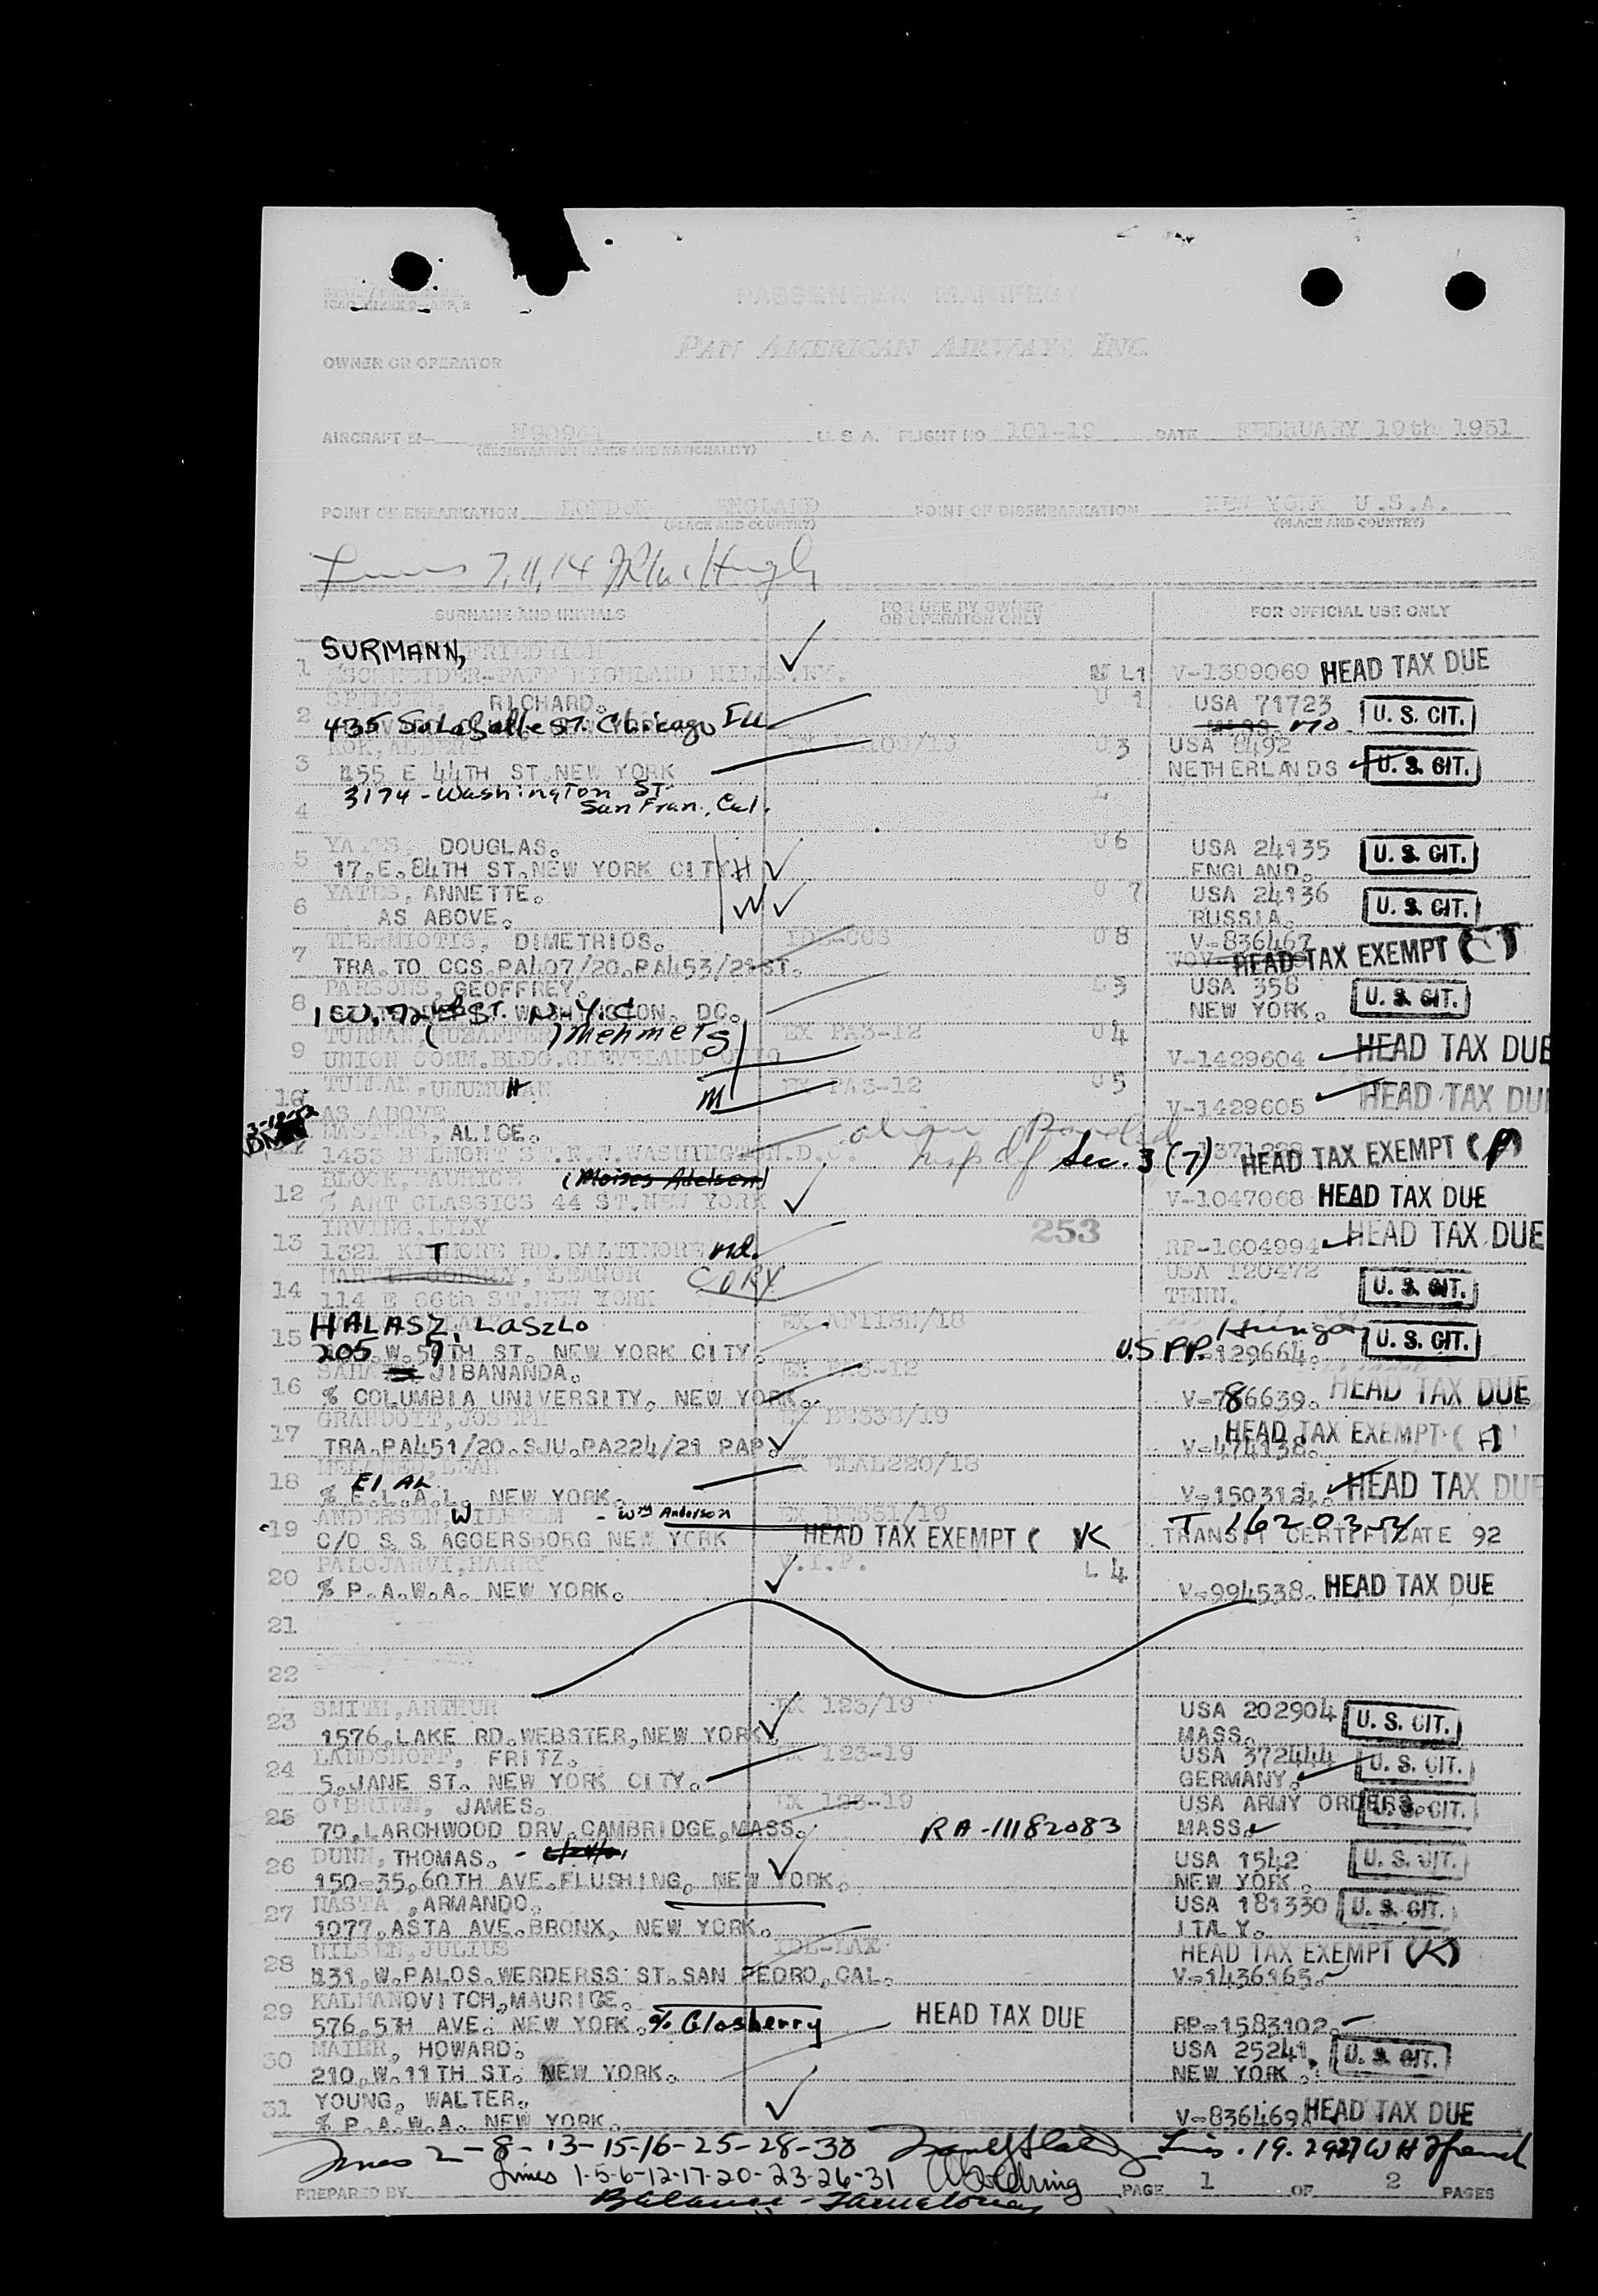 PASSENGER MANIFEST
PAN AMERICAN AIRWAYS, INC.
OWNER OR OPERATOR
AIRCRAFT N90941 U. S. A. FLIGHT NO 101-19 DATE FEBRUARY 19th 1951
(REGISTRATION MARKS AND NATIONALITY)
POINT OF EMBARKATION LONDON ENGLAND POINT OF DISEMBARKATION NEW YORK U.S.A.
(PLACE AND COUNTRY) (PLACE AND COUNTRY)
7, 11, 14
SURNAME AND INITIALS FOR USE BY OWNER OR OPERATOR ONLY FOR OFFICIAL USE ONLY
SURMANN, FRIEDRICH
1 %SCHNEIDER-PAFF HIGHLAND HILLS.NY. L1 V-1389069 HEAD TAX DUE
RICHARD. U 1 USA 71723
2 435 So LaSalle St. Chicago Ill mo. U. S. CIT.
KOK, ALBERT 100/19 U 3 USA 8492
3 155 E 44TH ST.NEW YORK NETHERLANDS U. S. CIT.
3174 - Washington ST.
4 San Fran., Cal. L
YATES, DOUGLAS. U 6 USA 24135
5 17.E.84TH ST.NEW YORK CITY.H ENGLAND. U. S. CIT.
YATES, ANNETTE. W U 7 USA 24136
6 AS ABOVE. RUSSIA. U. S. CIT.
THERMIOTIS, DIMETRIOS. IDL-CCS U 8 V-836467
7 TRA.TO CCS.PA407/20.PA453/21ST. HEAD TAX EXEMPT (CT
PARSONS, GEOFFREY. U5 USA 358
8 1 W. 72nd ST. N.Y.C WASHINGTON, DC. NEW YORK. U. S. CIT.
TURHAN,(MUZAFFER) Mehmet S EX PA3-12 U 4
9 UNION COMM.BLDG.CLEVELAND OHIO V-1429604 HEAD TAX DUE
TURHAN, UMUMUHAN M EX PA3-12 U 5
10 AS ABOVE V-1429605 HEAD TAX DUE
3-18-52
MASTERS, ALICE. alien Paroled
11 1433 BELMONT ST.N.W.WASHINGTON.D.C. Sec. 3 (7) HEAD TAX EXEMPT (P)
BLOCK, MAURICE (Moises Adelson)
12 % ART CLASSICS 44 ST.NEW YORK V-1047068 HEAD TAX DUE
IRVING,LILY 253
13 1321 KITMORE RD.BALTIMORE Md. RP-1604994 HEAD TAX DUE
MARTIN-CONELY, ELEANOR CORY USA 120472
14 114 E 66th ST.NEW YORK TENN. U. S. CIT.
HALASZ, LasZLo EX AF118N/18 Hungary
15 205 W.57TH ST. NEW YORK CITY. US PP.-129664. U. S. CIT.
SAHA JIBANANDA. EX PA3-12
16 % COLUMBIA UNIVERSITY. NEW YORK. V-786639. HEAD TAX DUE
GRANDOIT, JOSEPH EX BE638/19 HEAD TAX EXEMPT (F)
17 TRA.PA451/20.SJU.PA224/21 PAP V-474138.
MELAMED, LEAH EX ELAL220/18
18 % E.L.A.L. El AL NEW YORK. V-150312. HEAD TAX DUE
ANDERSEN, WILHELM - Wm Anderson EX BE651/19 T 1620354
19 C/O S.S. AGGERSBORG NEW YORK HEAD TAX EXEMPT ( K TRANSIT CERTIFICATE 92
PALOJARVI,HARRY V.I.P. L 4
20 % P.A.W.A. NEW YORK. V-994538. HEAD TAX DUE
21
22
SMITH,ARTHUR EX 123/19 USA 202904
23 1576.LAKE RD.WEBSTER,NEW YORK MASS. U. S. CIT.
LANDSHOFF, FRITZ. EX 123-19 USA 372444
24 5.JANE ST. NEW YORK CITY. GERMANY. U. S. CIT.
O'BRIEN, JAMES. EX 123-19 USA ARMY ORDERS. U. S. CIT.
25 70.LARCHWOOD DRV.CAMBRIDGE,MASS. RA-11182083 MASS.
DUNN,THOMAS. USA 1542 U. S. CIT.
26 150-35.60TH AVE.FLUSHING. NEW YORK. NEW YORK.
NASTA ,ARMANDO. USA 181330 U. S. CIT.
27 1077.ASTA AVE.BRONX, NEW YORK. ITALY.
NILSEN,JULIUS IDL-LAX HEAD TAX EXEMPT (K)
28 131.W.PALOS.WERDERSS ST.SAN PEDRO,CAL. V-1436165.
KALMANOVITCH,MAURICE.
29 576.5TH AVE. NEW YORK. % Glasberry HEAD TAX DUE RP-1583102.
MAIER, HOWARD. USA 25241.
30 210.W.11TH ST. NEW YORK. NEW YORK. U. S. CIT.
YOUNG, WALTER.
31 % P.A.W.A. NEW YORK. V-836469. HEAD TAX DUE
Lines 2-8-13-15-16-25-28-30
Lines 1-5-6-12-17-20-23-26-31
PREPARED BY PAGE 1 OF 2 PAGES
Balance -